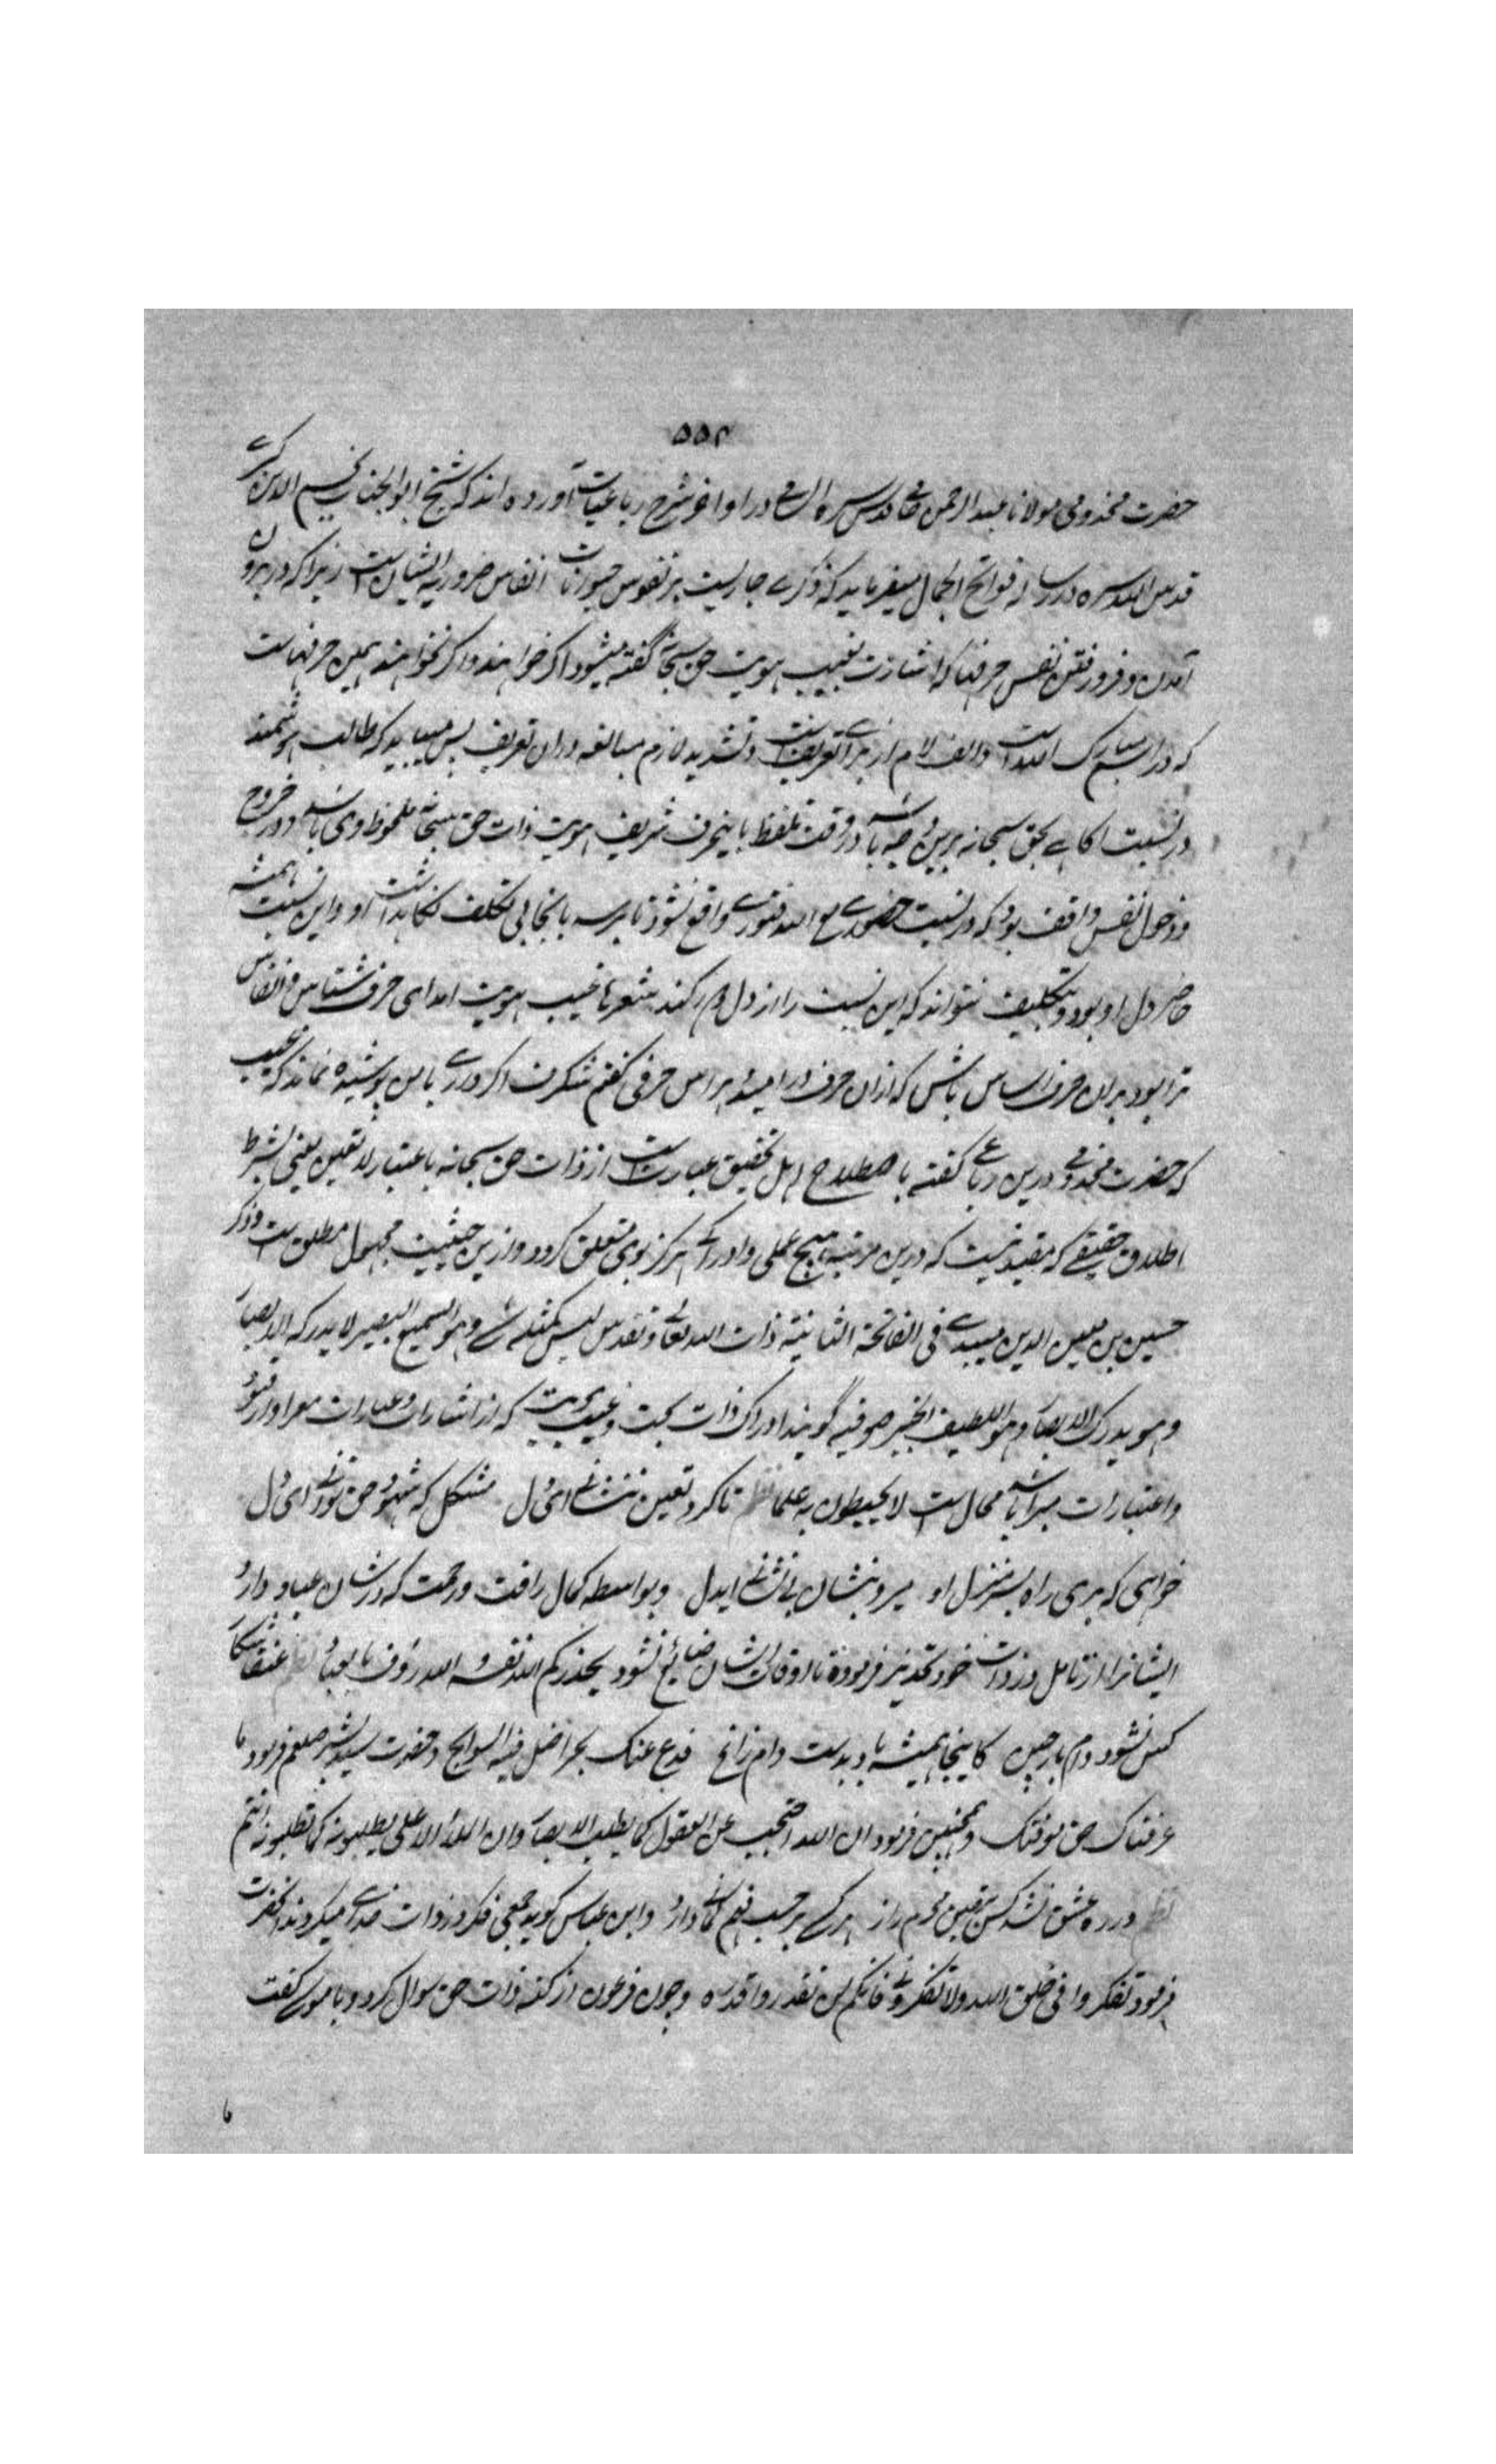 ۵۵۲
حضرت مخدومی مولانا عبدالرحمن جامی قدس سره السامی در اواخر شرح رباعیات آورده اند که شیخ ابوالجناب نجم الدین کبری
قدس الله سره در رساله فواتح الجمال میفرماید که ذکری جاریست بر نفوس حیوانات انفاس ضروریه ایشانست زیرا که در برون
آمدن و فرو رفتن نفس حرف ها که اشارت بغیب هویت حق سبحانه گفته میشود اگر خواهند و اگر نخواهند همین حرف هاست
که در اسم مبارک الله است و الف لام از برای تعریفست و تشدید لازم مبالغه در ان تعریف پس میباید که طالب هوشمند
در نسبت اکاهی بحق سبحانه برین وجه باشد در وقت تلفظ باینحرف شریف هویت ذات حق سبحانه ملحوظ وی باشد و در خروج
و دخول نفس واقف بود که در نسبت حضوری مع الله فتوری واقع نشود تا برسد بانجا بی تکلف نکاهداشت او و این نسبت همیشه
حاضر دل او بود و بتکلیف نتواند که این نسبت را از دل دور کند شعر ها غیب هویت امد ای حرف شناس و انفاس
ترا بود بران حرف اساس باش که ازان حرف در امید و هراس حرفی گفتم شگرف اگر داری پاس پوشیده نماند که غیب
که حضرت مخدومی درین رباعی گفته باصطلاح اهل تحقیق عبارتست از ذات حق سبحانه باعتبار لا تعین یعنی بشرط
اطلاق حقیقی که مقید نیست که درین مرتبه هیچ علمی و ادراکی هرگز بوی متعلق نگردد و ازین حیثیت مجهول مطلق است و ذکر
حسین بن معین الدین میبدی فی الفاتحة الثانیة ذات الله تعالی و تقدس لیس کمثله شی و هو السمیع البصیر لا یدرکه الابصار
و هو یدرک الابصار و هو اللطیف الخبیر صوفیه گویند ادراک ذات بحت و غیب هویت که از اشارات و عبارات معرا و از قیود
و اعتبارات مبرا باشد محال است لا یحیطون به علما نظم تا کرد تعین نشانی ای دل مشکل که شهود حق توانی ای دل
خواهی که بری راه بسر منزل او میرو بنشان بی نشانی ایدل و بواسطه کمال رافت و رحمت که در شان عباد دارد
ایشانرا از تامل در ذات خود تحذیر فرموده تا اوقات ایشان ضائع نشود یحذرکم الله نفسه و الله رؤف بالعباد نظم عنقا شکار
کس نشود دام بازچین کاینجا همیشه باد بدست دام را فدع عنک بحرا ضل فیه السوابح و حضرت سید البشر صلعم فرمود ما
عرفناک حق معرفتک و همچنین فرمود ان الله احتجب عن العقول کما یطلب الابصار وان الملأ الاعلی یطلبونه کما تطلبونه انتم
نظم در ره عشق نشد کس بیقین محرم راز هر کسی بر حسب فهم کمانی دارد و ابن عباس گوید جمعی فکر در ذات خدای میکردند انحضرت
فرمود تفکروا فی خلق الله ولا تفکروا فی فانکم لن تقدروا قدره و چون فرعون از کنه ذات حق سوال کرد و با موسی گفت
ما